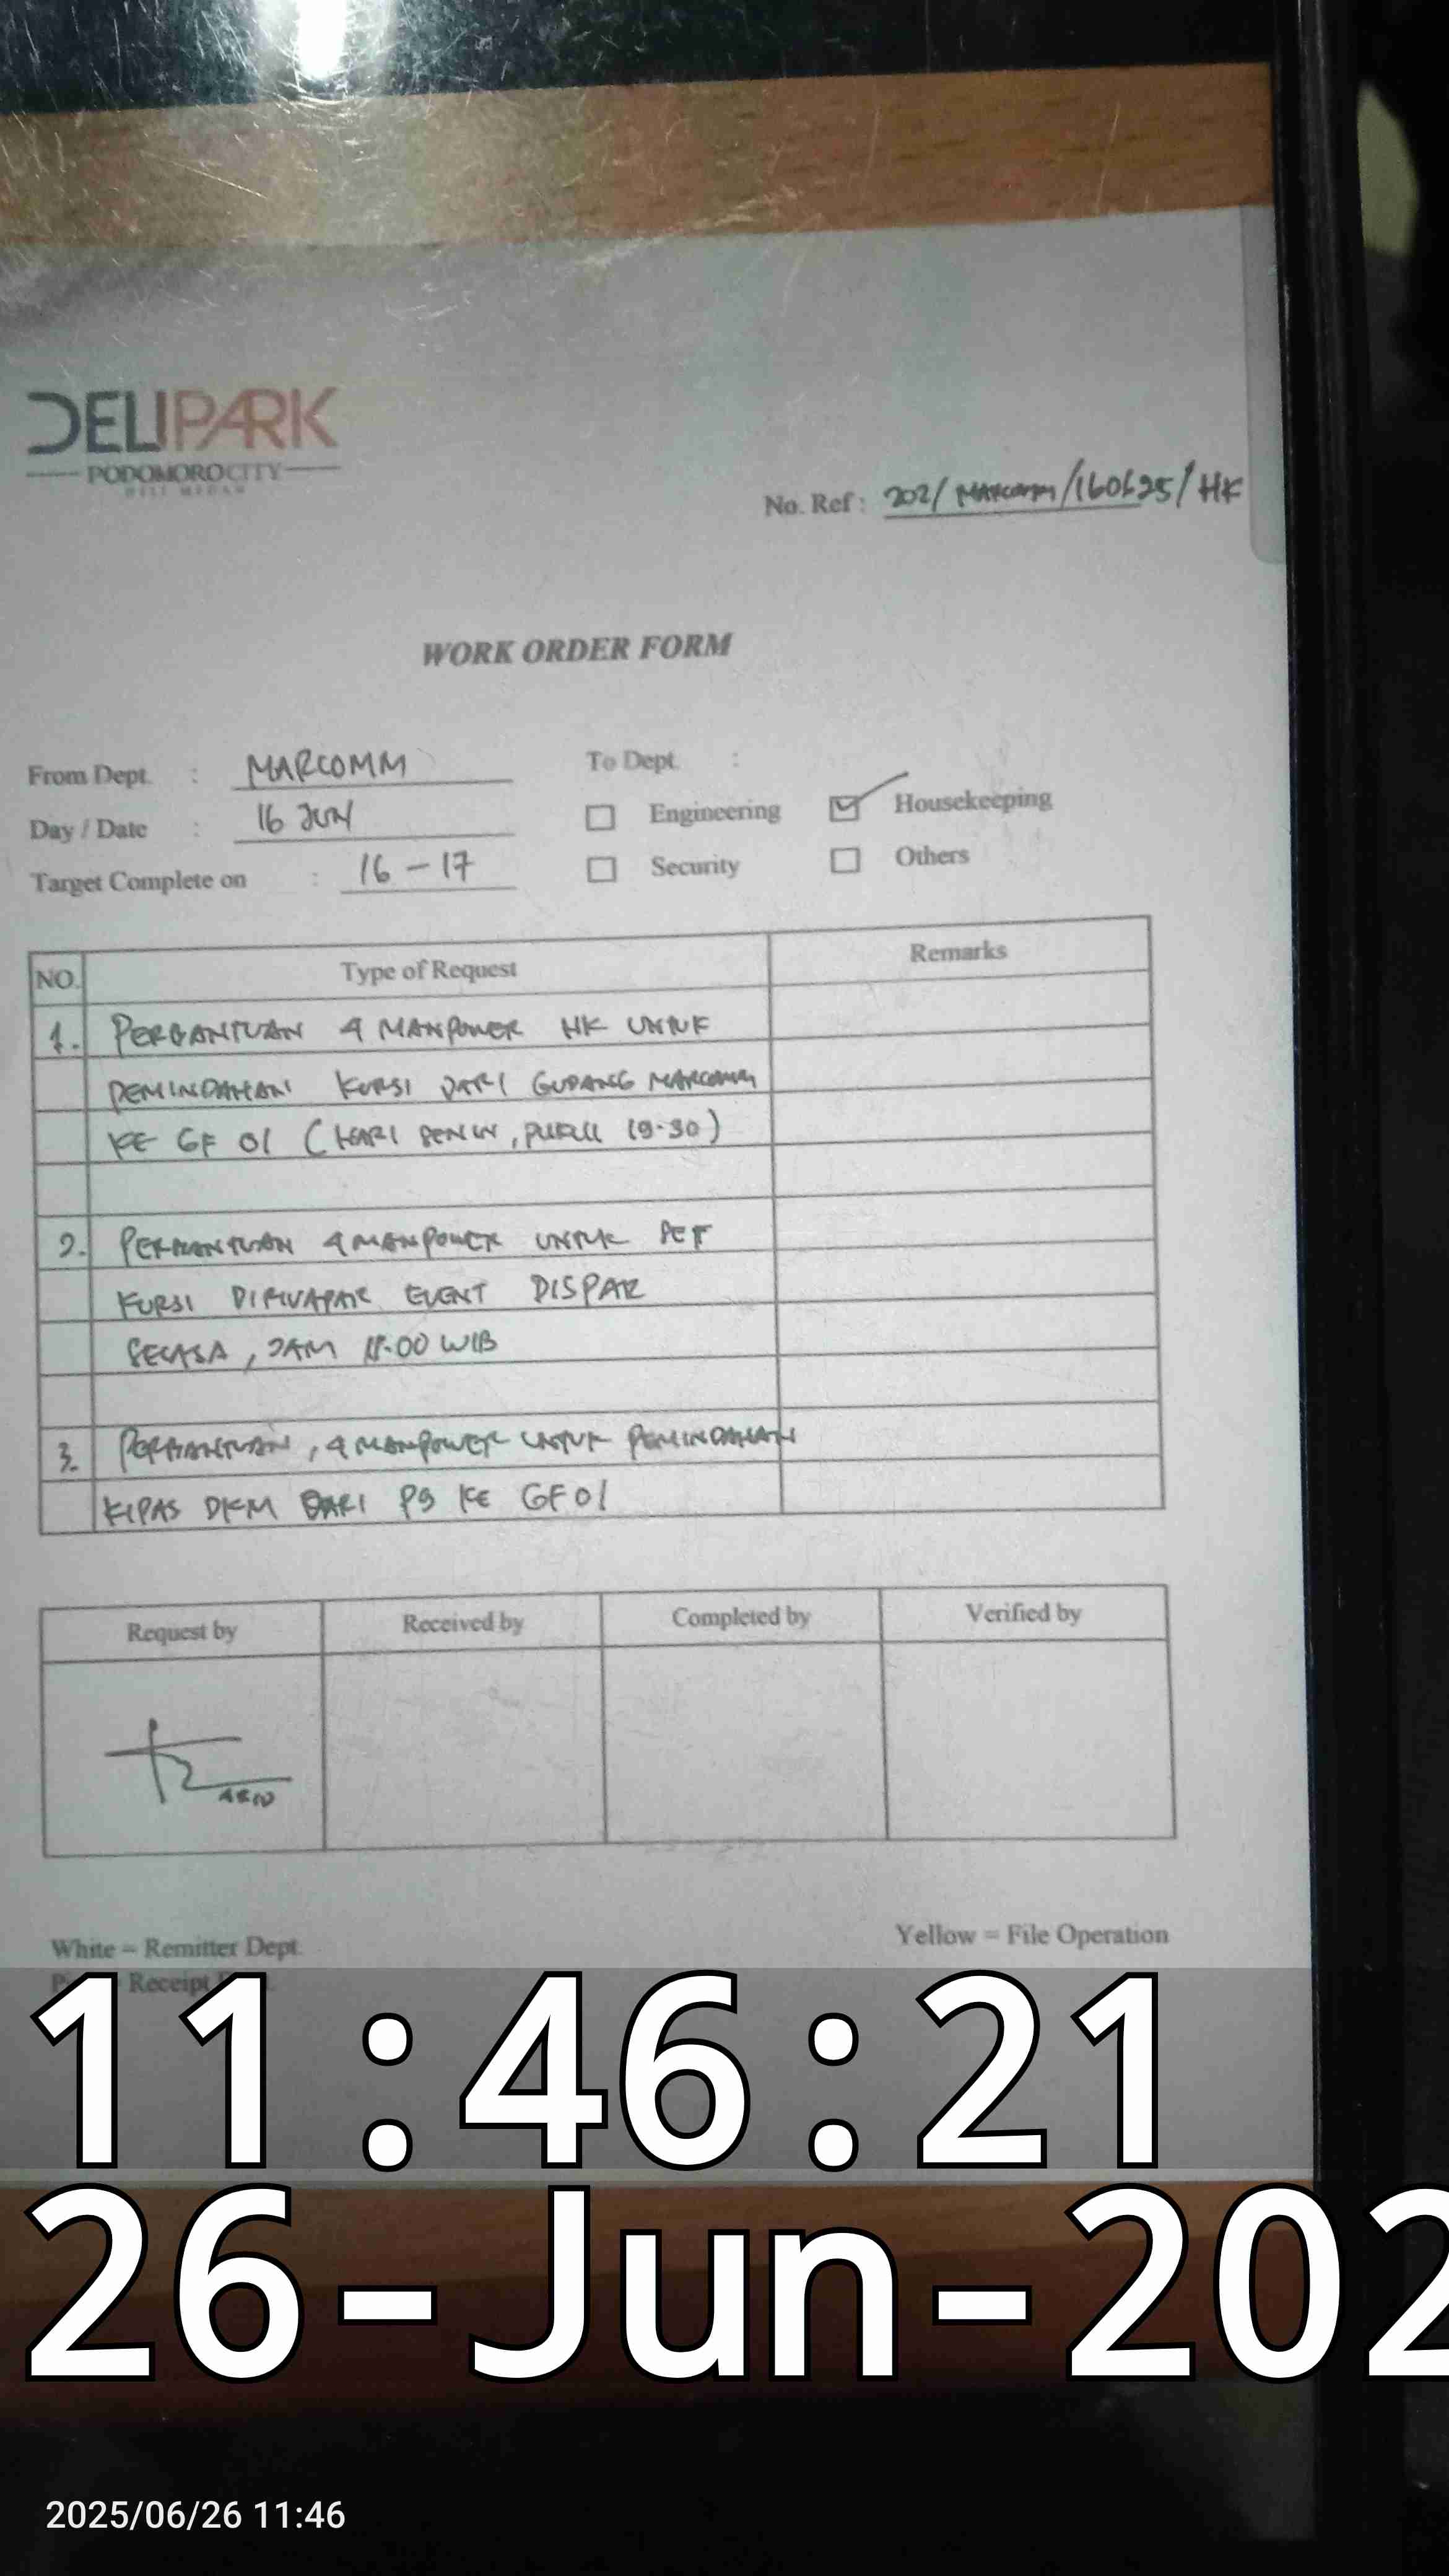 DELIPARK
PODOMOROCITY
DELI MEDAN
No. Ref : 202/ MARCOMM/160625/ HK
WORK ORDER FORM
From Dept. : MARCOMM
To Dept. :
Day / Date : 16 JUN
Engineering
Housekeeping
Target Complete on : 16 - 17
Security
Others
NO. Type of Request Remarks
1. PERBANTUAN 4 MANPOWER HK UNTUK
PEMINDAHAN KURSI DARI GUDANG MARCOMM
KE GF 01 (HARI SENIN, PUKUL 19.30)
2. PERBANTUAN 4 MANPOWER UNTUK SET
KURSI EVENT DISPAR
SELASA, JAM WIB
3. PERBANTUAN, 4 MANPOWER UNTUK PEMINDAHAN
KIPAS DKM DARI P9 KE GF 01
Request by Received by Completed by Verified by
White = Remitter Dept.
Yellow = File Operation
Receipt
11:46:21
26-Jun-202
2025/06/26 11:46